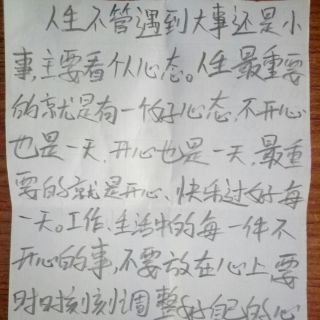 人生不管遇到大事还是小
事,主要看个人心态。人生最重要
的就是有一个好心态,不开心
也是一天,开心也是一天,最重
要的就是开心、快乐过好每
一天。工作、生活中的每一件不
开心的事,不要放在心上,要
时时刻刻调整好自己的心